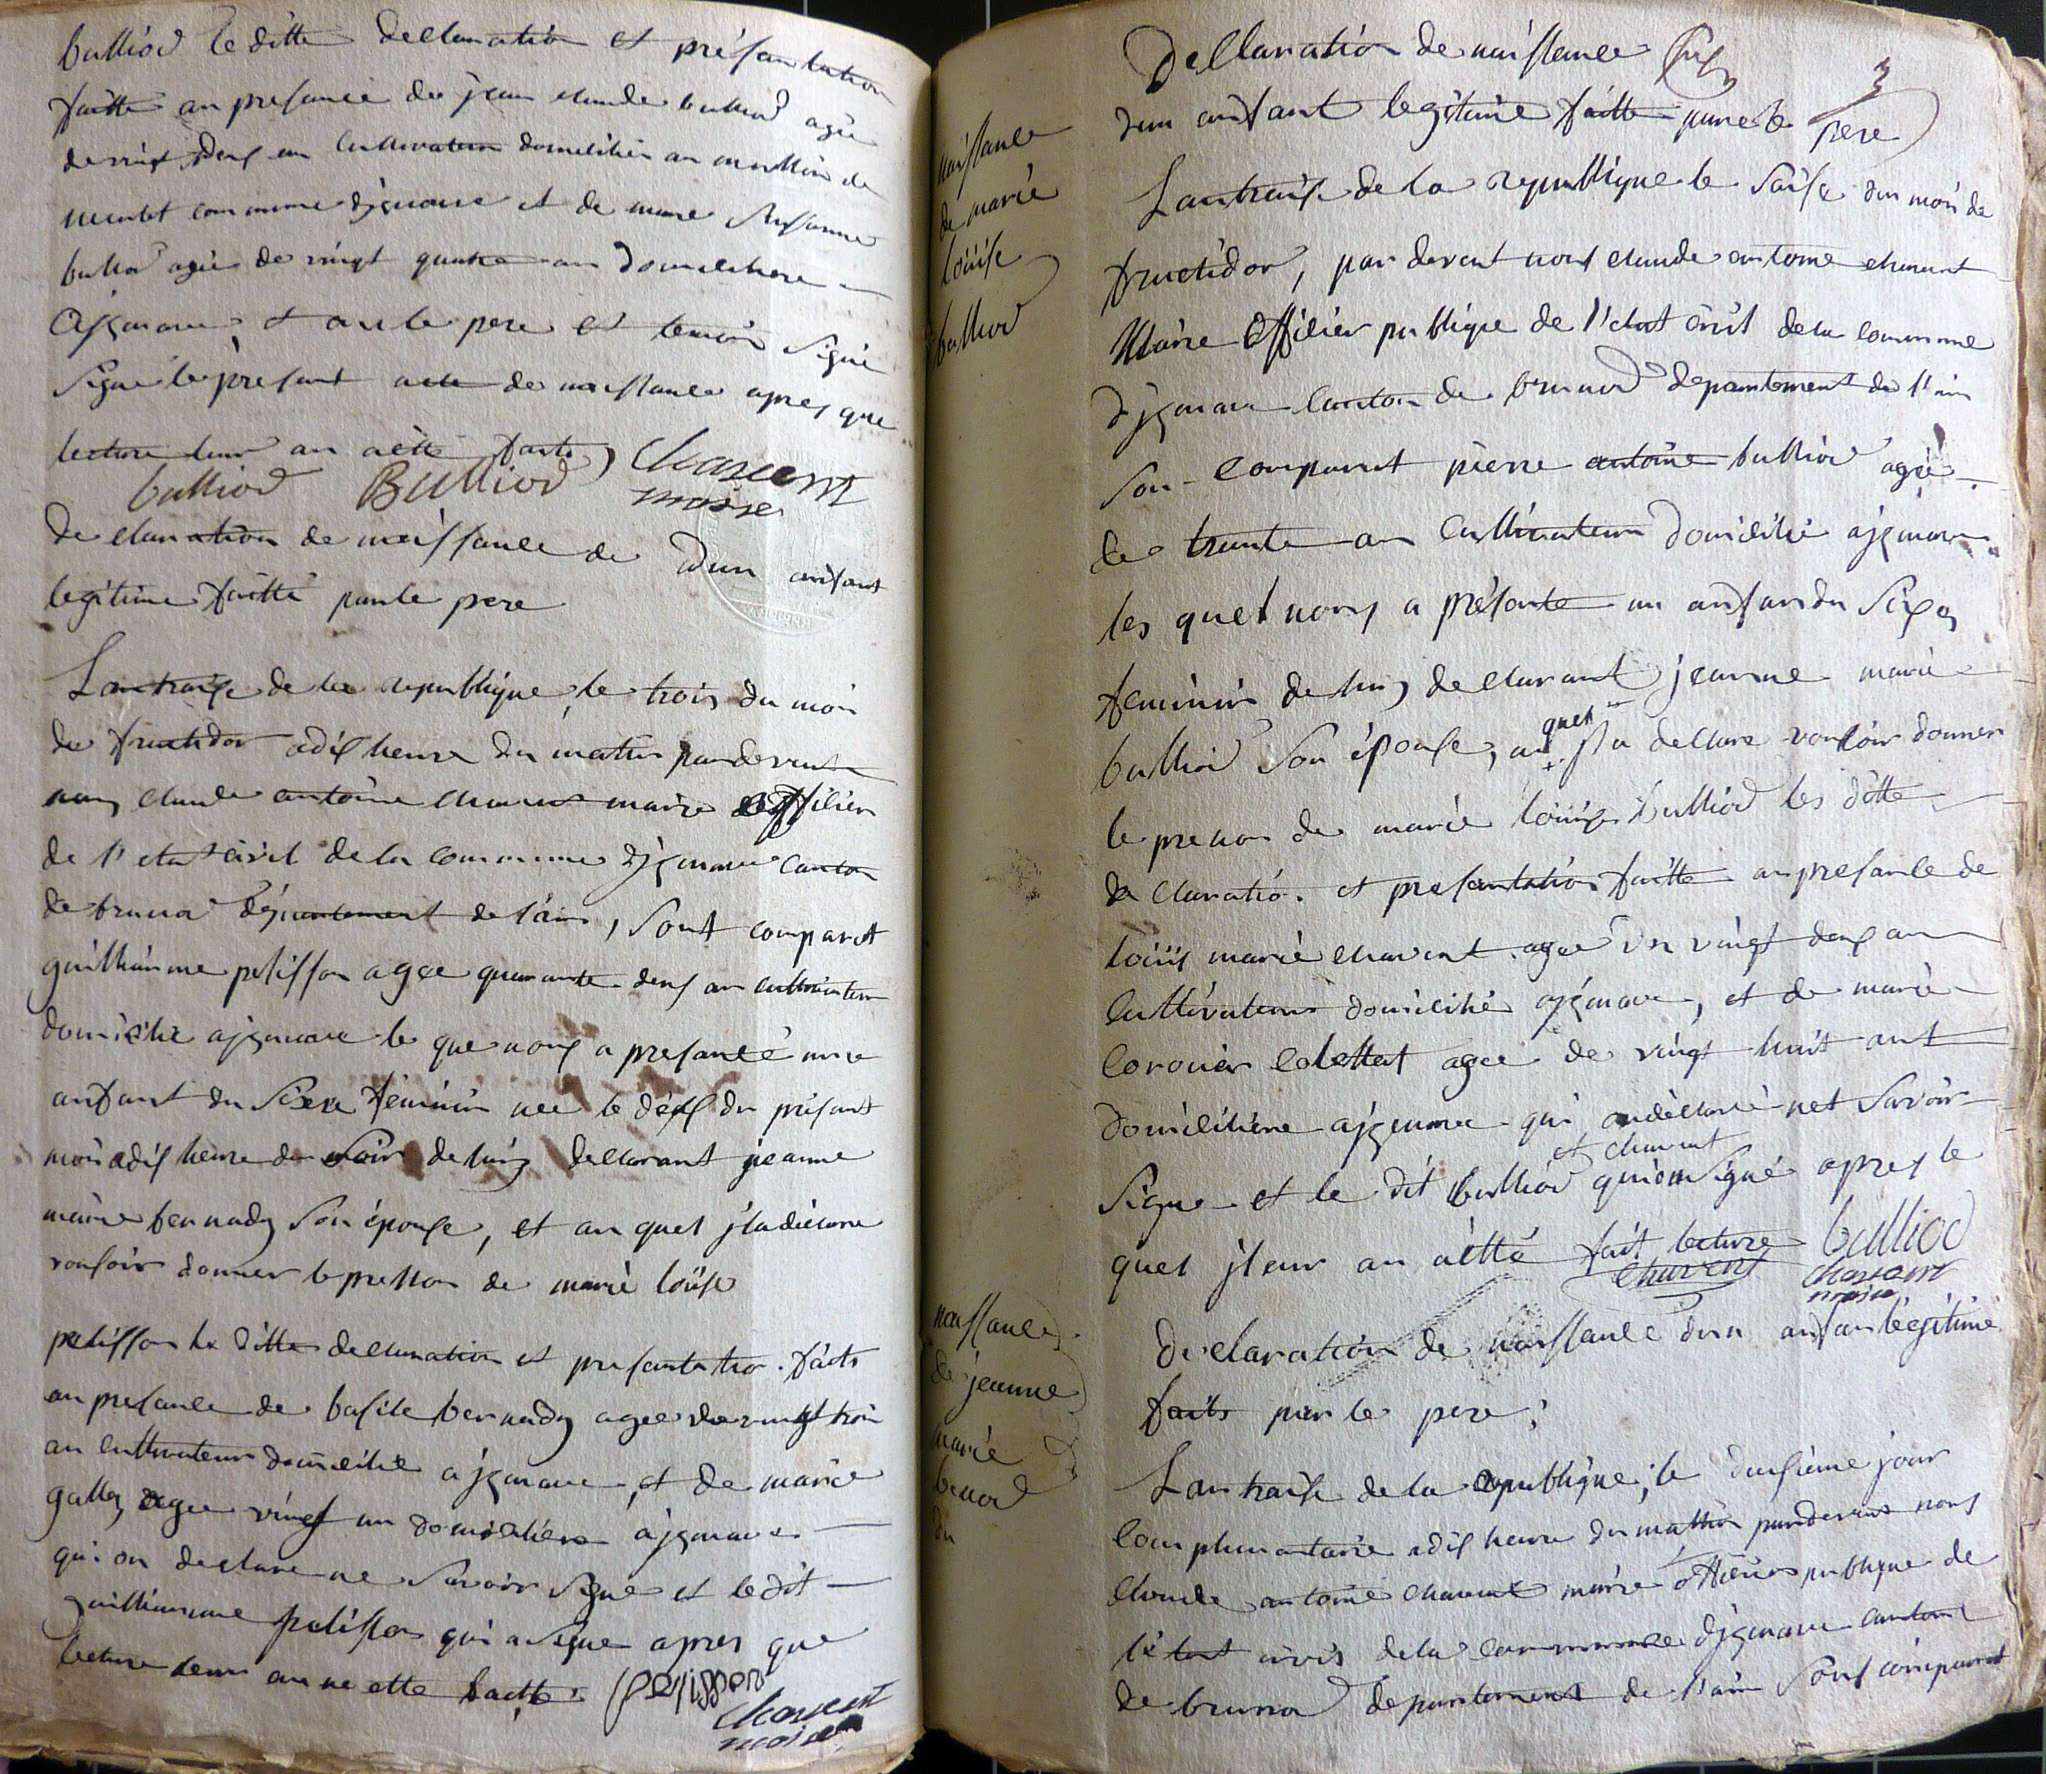 bulliod le ditte declaration et présantation
faitte an presance de jean claude bulliod agée
de vingt deux an cultivateur domicilié au moullin de
commune djgnave et de marie Susanne
bulliod agée de vingt quatre an domiciliere
ajgnave et avec le pere et temoin signé
signé le présant acte de naissance apres que
lecture leur an aètté faite,
bulliod Bulliod Chavent
maire
declaration de naissance de dun anfant
legitime faitte par le pere
Lantraise de la republique, le trois du moi
de fructidor adix heure du matin pardevant
nous claude antoine chavent maire officier
de l'etat civil de la commune djgnave canton
de brunod département de l'ain, sont comparut
guilliaume pelisson agee quarante deux an cultivateur
domicilie ajgnave le que nous a presanté une
anfant du sexe feminin née le dexs du présant
mois adix heure du soir de luis declarant jeanne
marie bernady son épouse, et au quel jla déclare
vouloir donner le prenon de marie loüise
pelisson la ditte declaration et presantatio. faits
an presance de basile bernady agee de vingt troi
an cultivateur domicilié ajgnave, et de marie
galley agee vingt un domiciliere ajgnave
qui on declare ne savoir signe et le dit
guilliaume pelisson qui a signe apres que
lecture leur an ne ette faitte. pelisson
Chavent
maire
naissance
de marie
loüise
bulliod
naissance
de jeanne
marie
brunod
du
3
Declaration de naissance
dun anfant legitime faitte parre le pere
Lantraise de la republique le saise du moi de
fructidor, par devent nous claude antoine chavent
Maire officier publique de l'etat civil de la commune
djgnave canton de brunod departement de l'ain
son comparut pierre antoine bulliod agée
de trante an cultivateur domicilié ajgnave
les quel nous a présante un anfan du sexe
feminin de luy declarant jeanne marie
bulliod son épouse, au quel jl a declare vouloir donner
le prenon de marie loüise bulliod les ditte
declaratio. et presantation faitte an presance de
loüis marie chavent agee de vingt deux an
cultivateur domicilié ajgnave, et de marie
colettat agee de vingt huit ant
domiciliere ajgnave qui on déclaré net savoir
et chavent
signe et le dit bulliod qui on signé apres le
quel jleur an aètté fait lecture bulliod
chavent Chavent
maire
declaration de naissance dun anfan légitime
faits par le pere;
Lantraise de la republique, le deusieme jour
complimantaire adix heure du mattin pardevant nous
claude antoine chavent maire officier publique de
l'étact civis de la commune djgnave cantont
de brunod departement de l'ain sont comparut